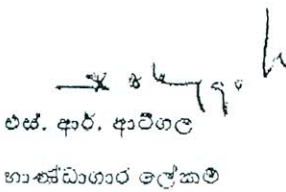 එස්. ආර්. ආටිගල
භාණ්ඩාගාර ලේකම්